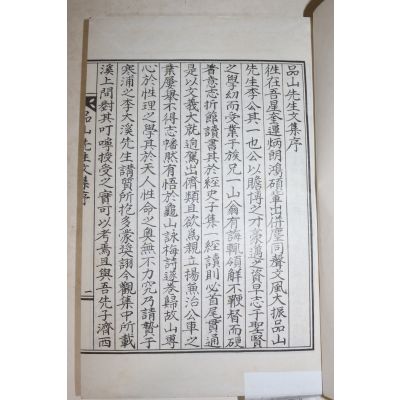 品山先生文集序
徃在吾星奎運炳朗鴻碩軰出倂塵司聲文風大振品山
先生李公其一也公以贍博之才豪邁之資早志于聖賢
之學幼而受業于族兄一山翁有誨輒領解不鞭督而硬
著意忘折節讀書其於經史子集一經讀則必首尾貫通
是以文義大就逈駕出儕類且欲爲親立揚魚治公車之
業屢擧不得志幡然有悟於龜山詠梅詩遂卷歸故山專
心於性理之學其於天人性命之奧無不力究乃請贄于
寒浦之李大溪先生講質所抱多蒙奬詡今觀集中所載
溪上問對其叮嚀授受之實可以考焉且與吾先子濟西
品山先生文集序
一